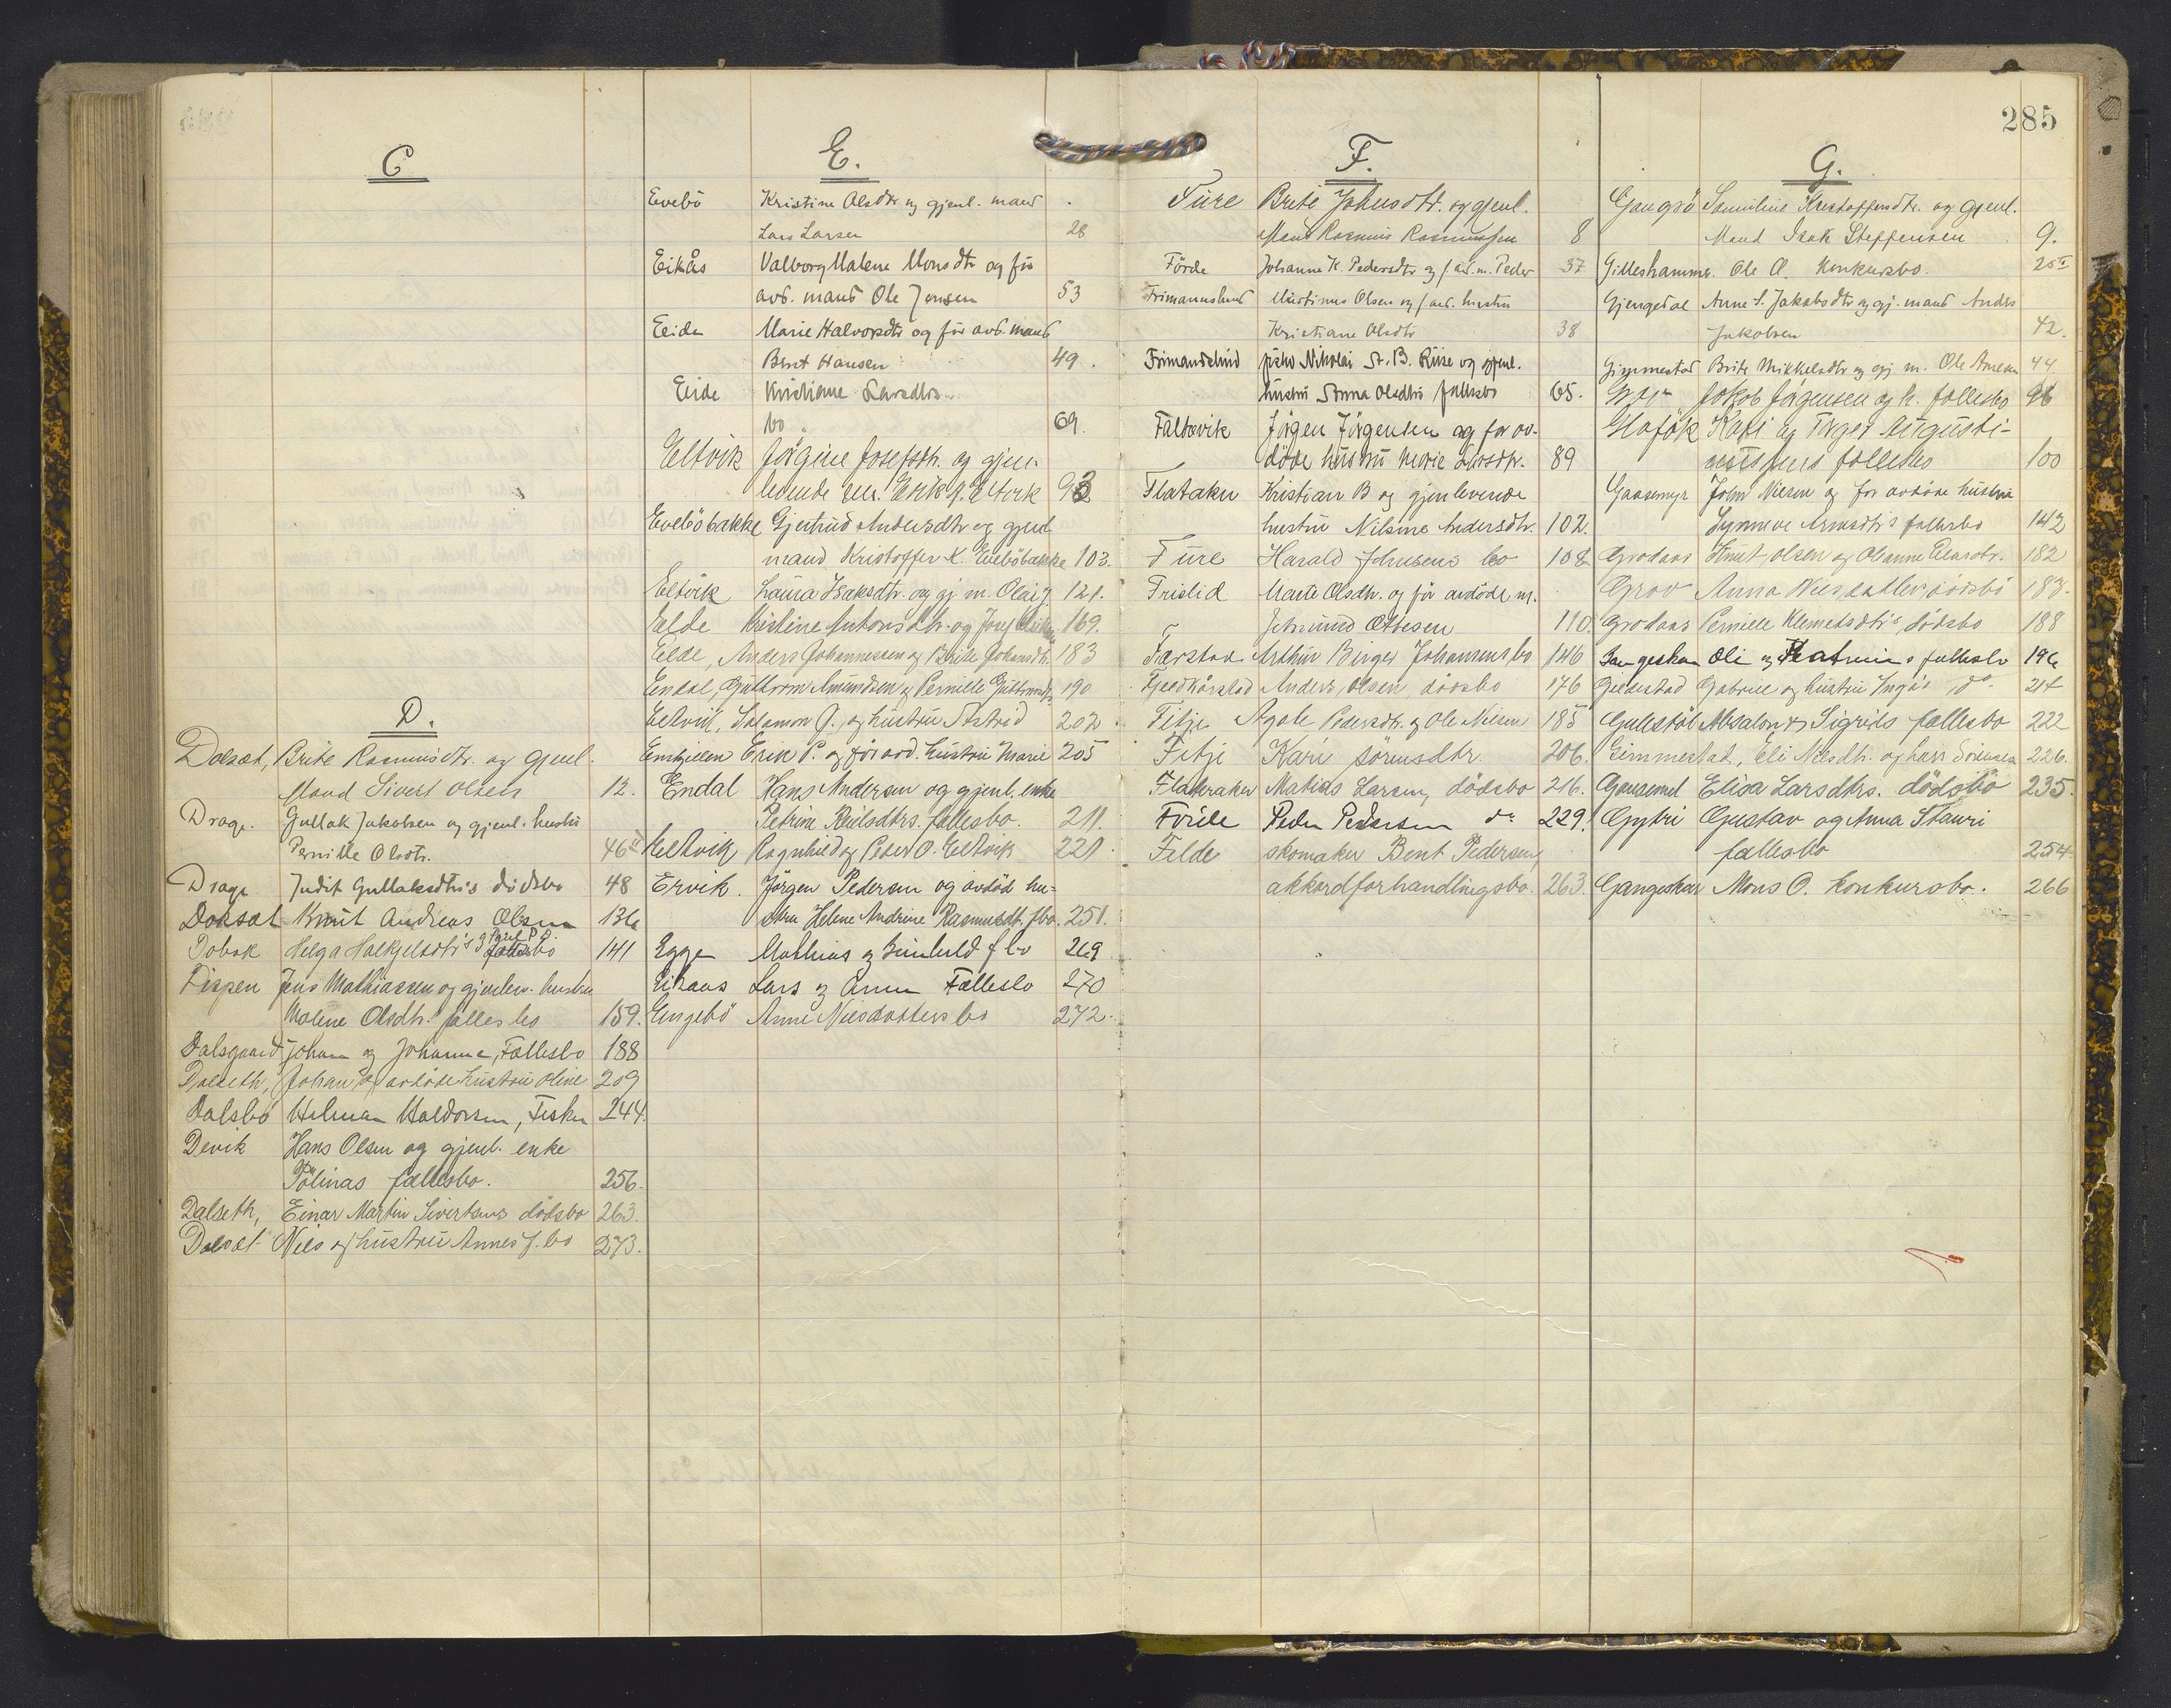 285
C
D.
Dalsæt, Brite Rasmusdtr. og gjenl.
Mand Sivert Olsen 12.
Drage. Gullak Jakobsen og gjenl. hustru
Pernille Olsdtr. 46
Drage Judit Gullaksdtr's dödsbo 48
Doksæt Knut Andreas Olsen 136
Dobak Helga Halkjelsdtr's fællesbo 141
Dispen Jens Mathiassen og gjenlev. hustru
Malene Olsdtr. fællesbo 159.
Dalsgaard Johan og Johanna, Fællesbo 188
Dalseth, Johan og avdöde hustru Oline 209
Dalsbö Hilmar Haldorsen, Fisker 244.
Devik Hans Olsen og gjenl. enke
Pölinas fællesbo. 256.
Dalseth, Einar Martin Sivertsens dödsbo 263.
Dalsæt Nils og hustru Annes f. bo 273.
E.
Evebö Kristine Olsdtr og gjenl. mand
Lars Larsen 28
Eikås Valborg Malene Monsdtr og for
avd. mand Ole Jensen 53
Eide Marie Halvorsdtr og for avd. mand
Bent Hansen 49.
Eide Kristiane Larsdtrs
bo 69.
Eltvik Jörgine Josefsdtr. og gjen-
levende Erik J. Eltvik 93
Eveböbakke Gjertrud Andersdtr og gjenl.
mand Kristoffer K. Eveböbakke 103.
Eltvik Laura Isaksdtr. og gj. m. Olai J. 121.
Elde Kristine Antonsdtr. og Josef 169.
Elde, Anders Johannessen og Brite Johansdtr. 183
Endal, Guttorm Amundsen og Pernille Guttormsdtr. 190
Eltvik, Salamon J. og hustru Astrid 202
Emhjellen Erik P. og for avd. hustru Marie 205
Endal Hans Andersen og gjenl. enke
Petrine fællesbo. 211.
Eltvik Ragnhild og Peder O. Eltvik 221
Ervik. Jörgen Pedersen og avdöd hu-
stru Helene Andrine Rasmusdt. f.bo. 251.
Egge Mathias og Gunhild f bo 269
Eikaas Lars og Anna Fællesbo 270
Engebö Anne Nilsdatters bo 272.
F.
Fure Brite Johnsdtr. og gjenl.
Mand Rasmus Rasmussen 8
Förde Johanne K. Pedersdtr og f. avd. m. Peder 37
Frimannslund Martinus Olsen og f. avd. hustru
Kristiane Olsdtr 38
Frimandslund Nikolai A. B. Riise og gjenl.
hustru Anna Olsdtrs fællesbo 65.
Faltevik Jörgen Jörgensen og for av-
döde hustru Marie Larsdtr. 89
Flataker Kristian B og gjenlevende
hustru Nilsine Andersdtr. 102.
Fure Harald Johnsens bo 108
Frislid Marte Olsdtr. og for avdöde m.
110.
Farstad Arthur Berger Johansens bo 146
Anders Olsen dödsbo 176
Fitje Agate Pedersdtr. og Ole Nilsen 185
Fitje Kari Sörensdtr. 206.
Flateraker Matias Larsens dödsbo 216.
Förde Peder Pedersen do 229.
Felde skomaker Bent Pedersens
akkordforhandlingsbo. 263.
G.
Gangsö Samuline Kristoffersdtr. og gjenl.
Mand Isak Steffensen 9.
Gilleshammer. Ole A. Konkursbo. 25
Gjengedal Anne S. Jakobsdtr og gj. mand Anders
Jakobsen 42.
Gimmestad Brite Mikkelsdtr og gj. m. Ole 44
Jakob Jörgensen og h. fællesbo 96
Kari og
fællesbo 100
Gaasemyr John Nilsen og for avdöde hustru
Synneve fællesbo 142
Grodaas Knut Olsen og Oleanne 182
Grov Anna Nilsdatters dödsbo 183.
Grodaas Pernille Klemetsdtr's dödsbo 188
Gangeskar Oli og Katrines fællesbo 196
Gjedestad Gabriel og hustru Ingas do. 214
Gulestöl Absalon & Sigrids fællesbo 222
Gimmestad, Eli Nilsdtr. og Lars Sörensen 226.
Elisa Larsdtrs. dödsbo 235.
Gytri Gustav og Anna Stauri
fællesbo 254
Gangeskar Mons O. Konkursbo. 266